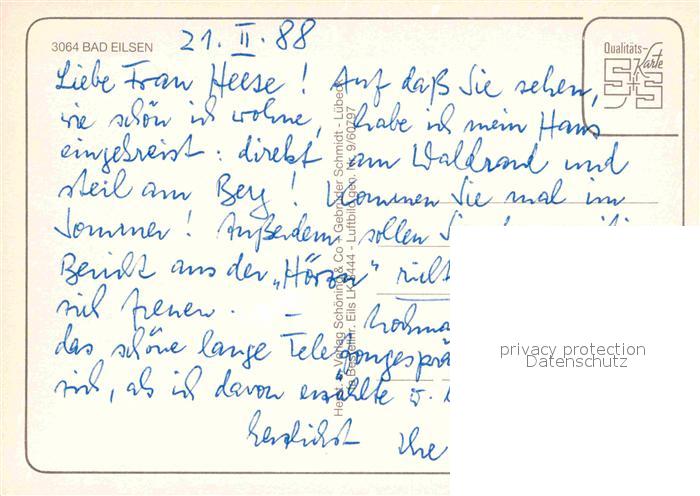 3064 BAD EILSEN
21. II. 88
Qualitäts-
Karte
Liebe Frau Heese! Auf daß Sie sehen,
wie schön ich wohne, habe ich mein Haus
eingekreist: direkt am Waldrand und
steil am Berg! Kommen Sie mal im
Sommer! Außerdem sollen Sie
Bericht aus der „Hörzu"
sich freuen. –
das schöne lange Telefongesprä
sich, als ich davon erzählte
herzlichst Ihre
Verlag Schöning & Co + Gebrüder Schmidt - Lübeck
privacy protection
Datenschutz